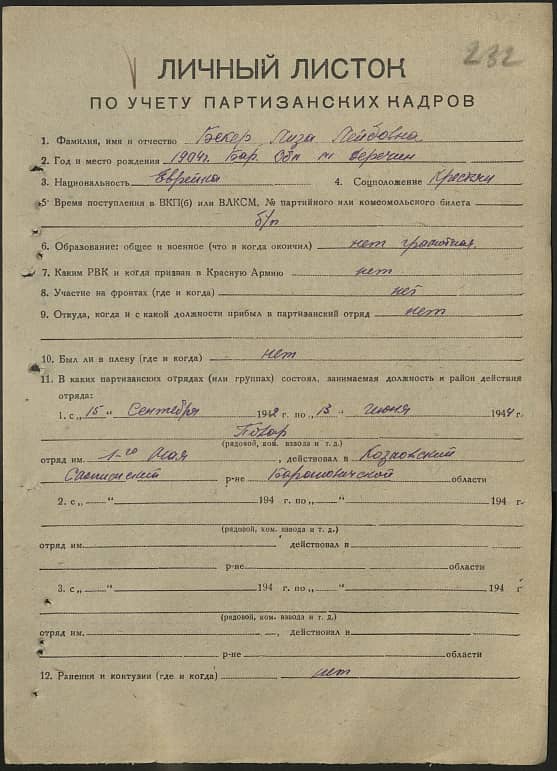 232
ЛИЧНЫЙ ЛИСТОК
ПО УЧЕТУ ПАРТИЗАНСКИХ КАДРОВ
1. Фамилия, имя и отчество Бекер Лиза Лейбовна
2. Год и место рождения 1904г. Бар. Обл м Деречин
3. Национальность Еврейка 4. Соцположение
5 Время поступления в ВКП(б) или ВЛКСМ, № партийного или комсомольского билета
б/п
6. Образование: общее и военное (что и когда окончил) нет грамотная.
7. Каким РВК и когда призван в Красную Армию нет
8. Участие на фронтах (где и когда) нет
9. Откуда, когда и с какой должности прибыл в партизанский отряд нет
10. Был ли в плену (где и когда) нет
11. В каких партизанских отрядах (или группах) состоял, занимаемая должность и район действия
отряда:
1. с „15 “ Сентября 1942 г. по „13 “ июня 1944 г.
Повар
(рядовой, ком. взвода и т. д.)
отряд им. 1-го Мая, действовал в Козловский
р-не Барановичской области
2. с „ “ 194 г. по „ “ 194 г.
(рядовой, ком. взвода и т. д.)
отряд им. действовал в
р-не области
3. с „ “ 194 г. по „ “ 194 г.
(рядовой, ком. взвода и т. д.)
отряд им. , действоиал в
р-не области
12. Ранения и контузии (где и когда) нет